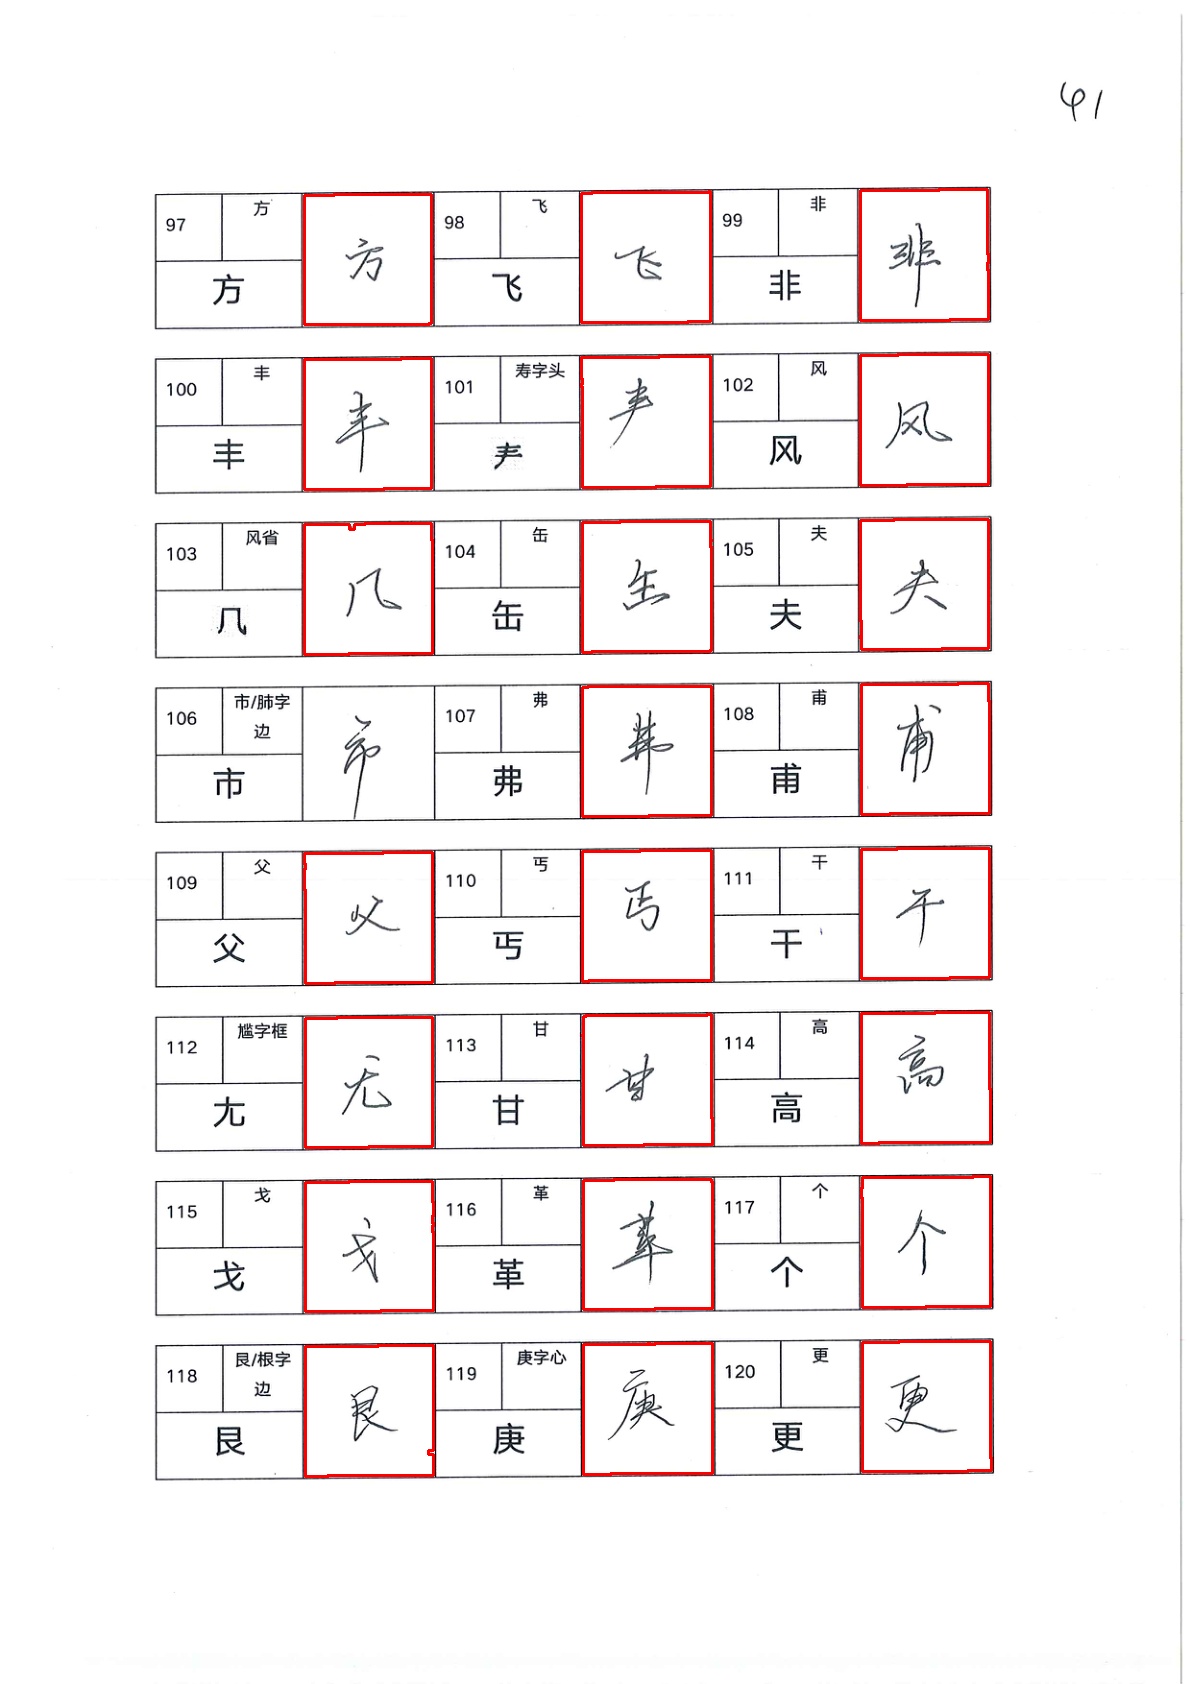 41
97 方 方 98 飞 飞 99 非 非
方 飞 非
100 丰 丰 101 寿字头 龵 102 风 风
丰 龵 风
103 风省 几 104 缶 缶 105 夫 夫
几 缶 夫
106 市/肺字边 市 107 弗 弗 108 甫 甫
市 弗 甫
109 父 父 110 丐 丐 111 干 干
父 丐 干
112 尴字框 尢 113 甘 甘 114 高 高
尢 甘 高
115 戈 戈 116 革 革 117 个 个
戈 革 个
118 艮/根字边 艮 119 庚字心 庚 120 更 更
艮 庚 更